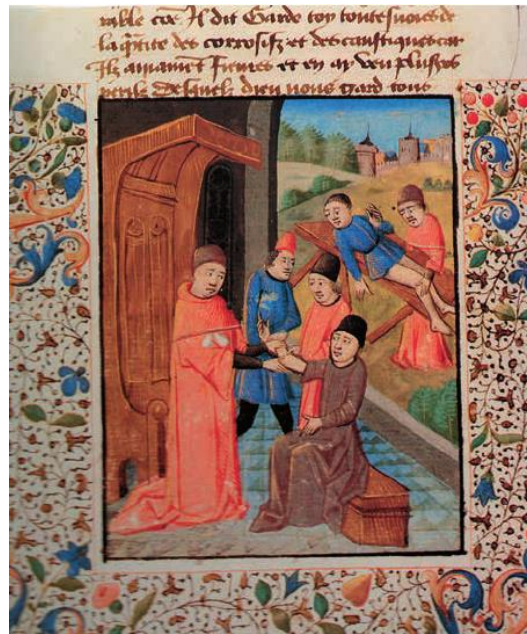 rable cõe Il dit Garde toy toutesuoies de
la q̃tite des corrosifz et des caustiques car
Ilz amainẽt fieures et en ay veu pluseͬs
perilz desquelz dieu nous gard tous